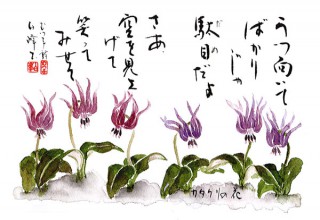 うつ向いて
ばかり
じゃ
駄目だよ
さあ
空を見上
げて
笑って
みせて
カタクリの花